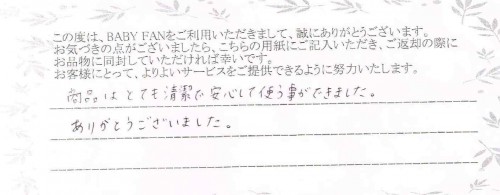 この度は、BABY FANをご利用いただきまして、誠にありがとうございます。
お気づきの点がございましたら、こちらの用紙にご記入いただき、ご返却の際に
お品物に同封していただければ幸いです。
お客様にとって、よりよいサービスをご提供できるように努力いたします。
商品はとても清潔で安心して使う事ができました。
ありがとうございました。